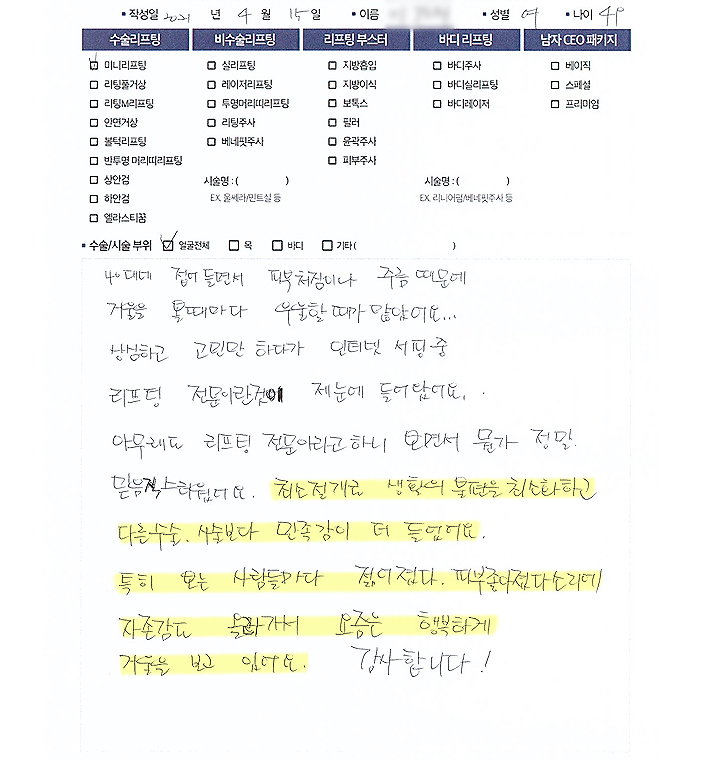 ▪ 작성일 2021 년 4 월 15 일 ▪ 이름 ▪ 성별 여 ▪ 나이 49
수술리프팅 비수술리프팅 리프팅 부스터 바디 리프팅 남자 CEO 패키지
미니리프팅 실리프팅 지방흡입 바디주사 베이직
리팅풀거상 레이저리프팅 지방이식 바디실리프팅 스페셜
리팅M리프팅 투명머리띠리프팅 보톡스 바디레이저 프리미엄
안면거상 리팅주사 필러
볼턱리프팅 베네핏주사 윤곽주사
반투명 머리띠리프팅 피부주사
상안검 시술명 : ( ) 시술명 : ( )
하안검 EX. 울쎄라/민트실 등 EX. 리니어펌/베네핏주사 등
엘라스티꿈
▪ 수술/시술 부위 얼굴전체 목 바디 기타 ( )
40대에 접어 들면서 피부처짐이나 주름 때문에
거울을 볼때마다 우울할 때가 많았어요...
상심하고 고민만 하다가 인터넷 서핑 중
리프팅 전문이란것이 제눈에 들어왔어요.
아무래도 리프팅 전문이라고 하니 보면서 뭔가 정말
믿음직스러웠어요. 최소절개로 생활의 불편을 최소화하고
다른수술, 시술보다 만족감이 더 들었어요.
특히 보는 사람들마다 젊어졌다. 피부좋아졌다소리에
자존감도 올라가서 요즘은 행복하게
거울을 보고 있어요. 감사합니다!